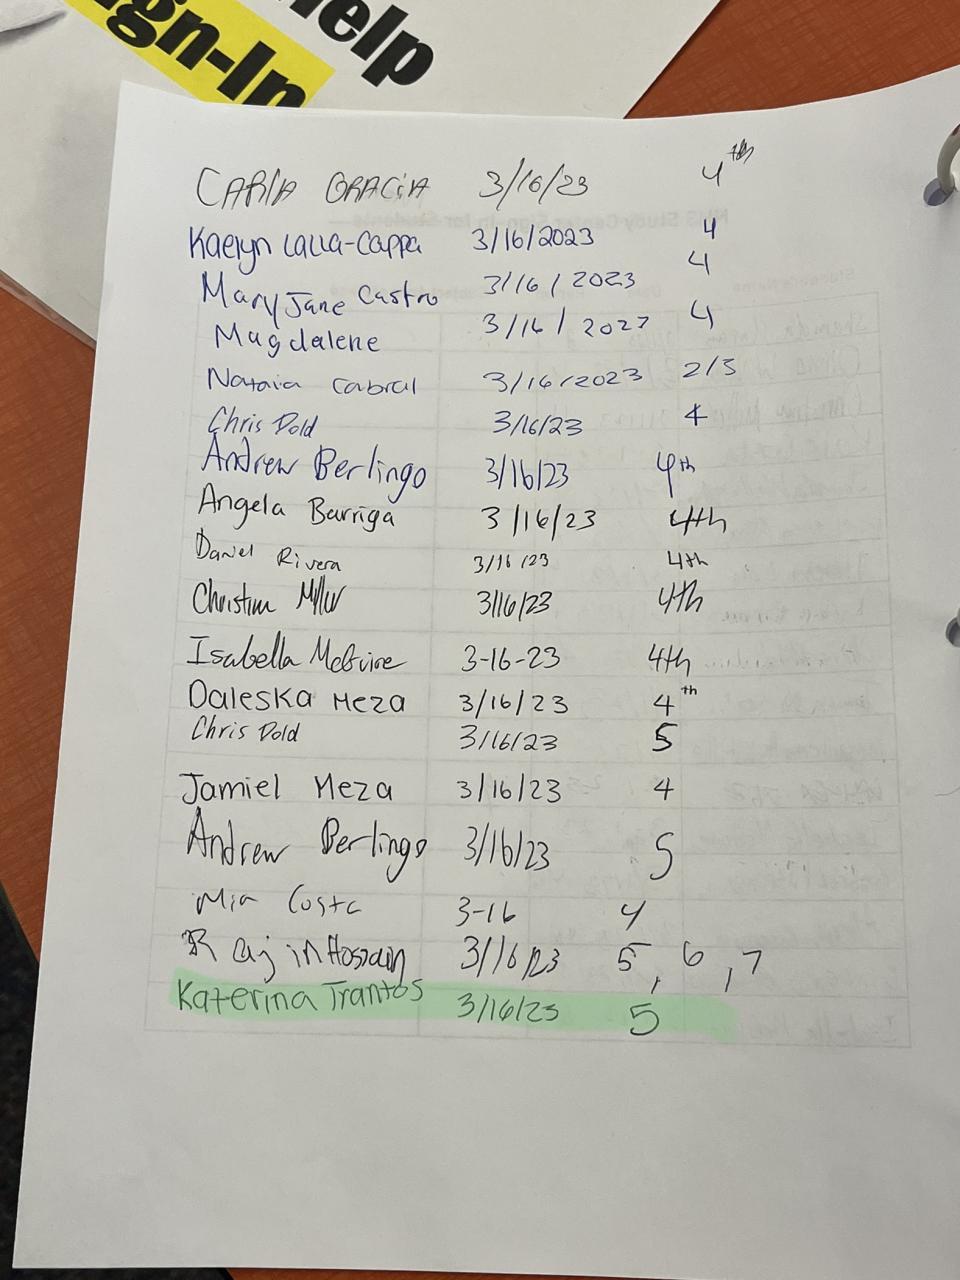 Help
Sign-In
CARIA GRACIA 3/16/23 4th
Kaelyn Lalla-Cappa 3/16/2023 4
Mary Jane Castro 3/16/2023 4
Magdalene 3/16/2027 4
Nataia Cabral 3/16/2023 2/3
Chris Dold 3/16/23 4
Andrew Berlingo 3/16/23 4th
Angela Barriga 3/16/23 4th
Daniel Rivera 3/16/23 4th
Christina Miller 3/16/23 4th
Isabella McGuire 3-16-23 4th
Daleska Meza 3/16/23 4th
Chris Dold 3/16/23 5
Jamiel Meza 3/16/23 4
Andrew Berlingo 3/16/23 5
Mia Costa 3-16 4
Rajin Hossain 3/16/23 5, 6, 7
Katerina Trantos 3/16/23 5